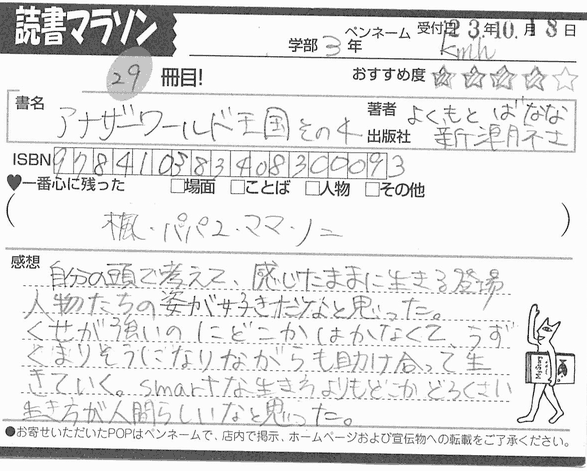 読書マラソン
学部 3年 ペンネーム kmh 受付日 23年10月18日
29 冊目! おすすめ度 ☆☆☆☆☆
書名 アナザーワールド王国その4
著者 よしもとばなな
出版社 新潮社
ISBN 9784103834083 00093
♥一番心に残った □場面 □ことば □人物 □その他
(楓・パパ2・ママ・ノニ)
感想 自分の頭で考えて、感じたままに生きる登場
人物たちの姿が好きだなと思った。
くせが強いのにどこかはかなくて、うず
くまりそうになりながらも助け合って生
きていく。smartな生き方よりもどこかどろくさい
生き方が人間らしいなと思った。
●お寄せいただいたPOPはペンネームで、店内で掲示、ホームページおよび宣伝物への転載をご了承ください。